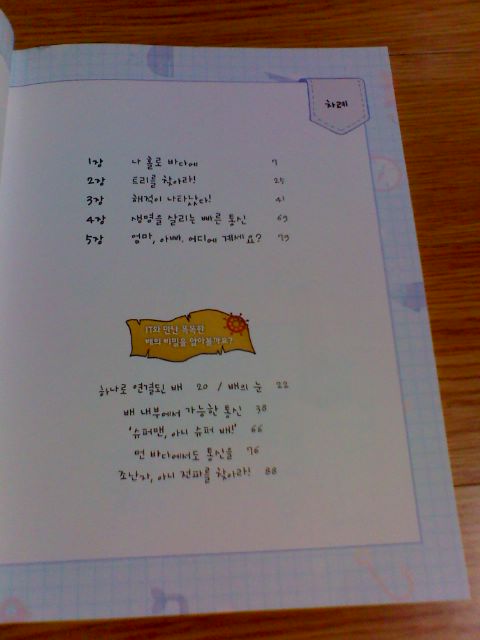 차례
1장 나 홀로 바다에 7
2장 트리를 찾아라! 25
3장 해적이 나타났다! 41
4장 생명을 살리는 빠른 통신 69
5장 엄마, 아빠. 어디에 계세요? 79
IT와 만난 똑똑한
배의 비밀을 알아볼까요?
하나로 연결된 배 20 / 배의 눈 22
배 내부에서 가능한 통신 38
'슈퍼맨, 아니 슈퍼 배!' 66
먼 바다에서도 통신을 76
조난자, 아니 전파를 찾아라! 88